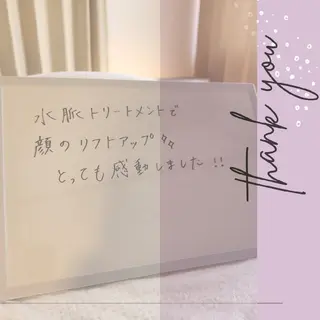 水脈トリートメントで
顔のリフトアップ✨
とっても感動しました!!
thank you